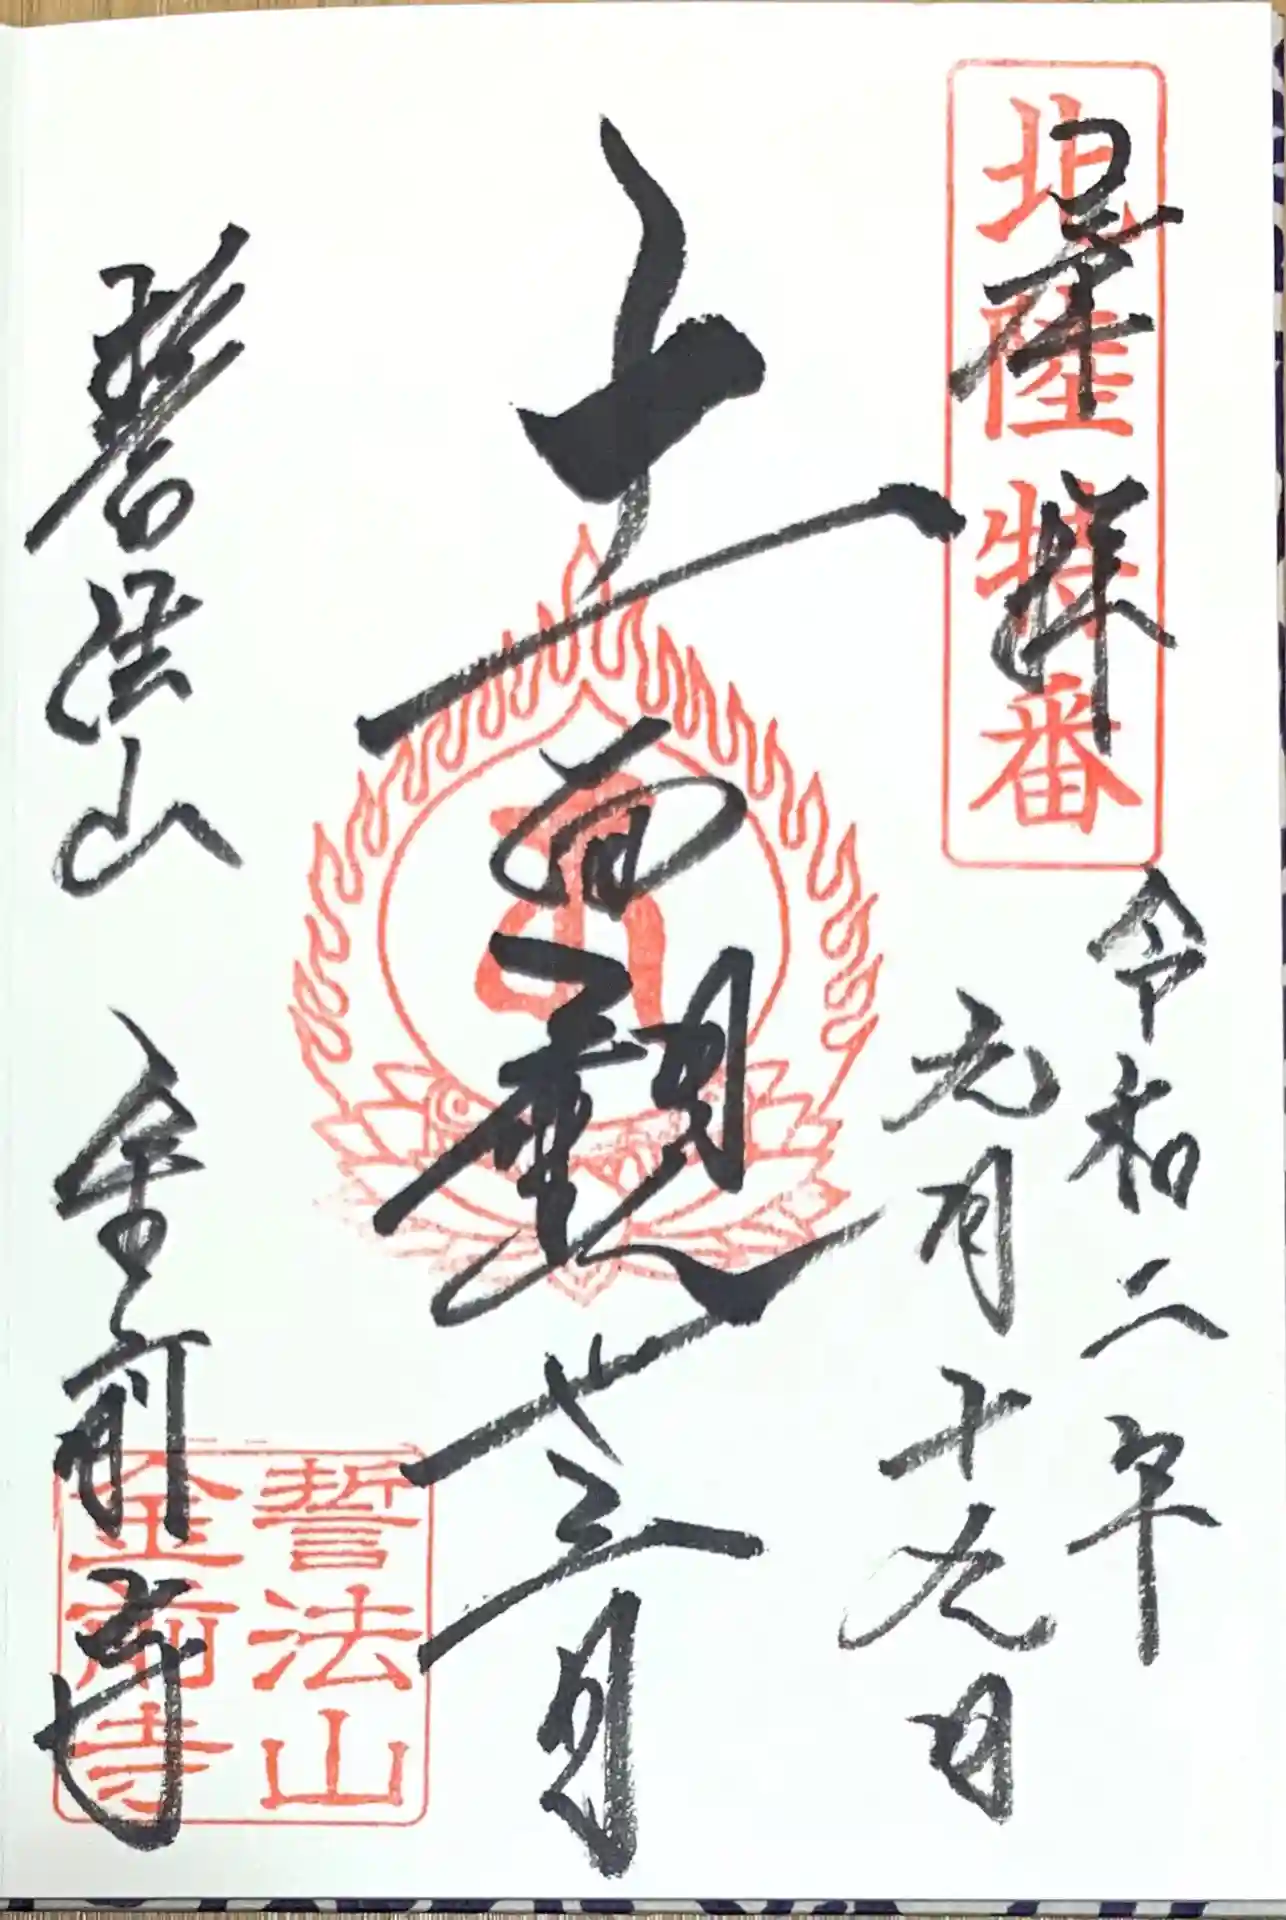 北陸特番
奉拝
令和二年
元月十九日
十一面観世音
誓法山 金前寺
誓法山
金前寺